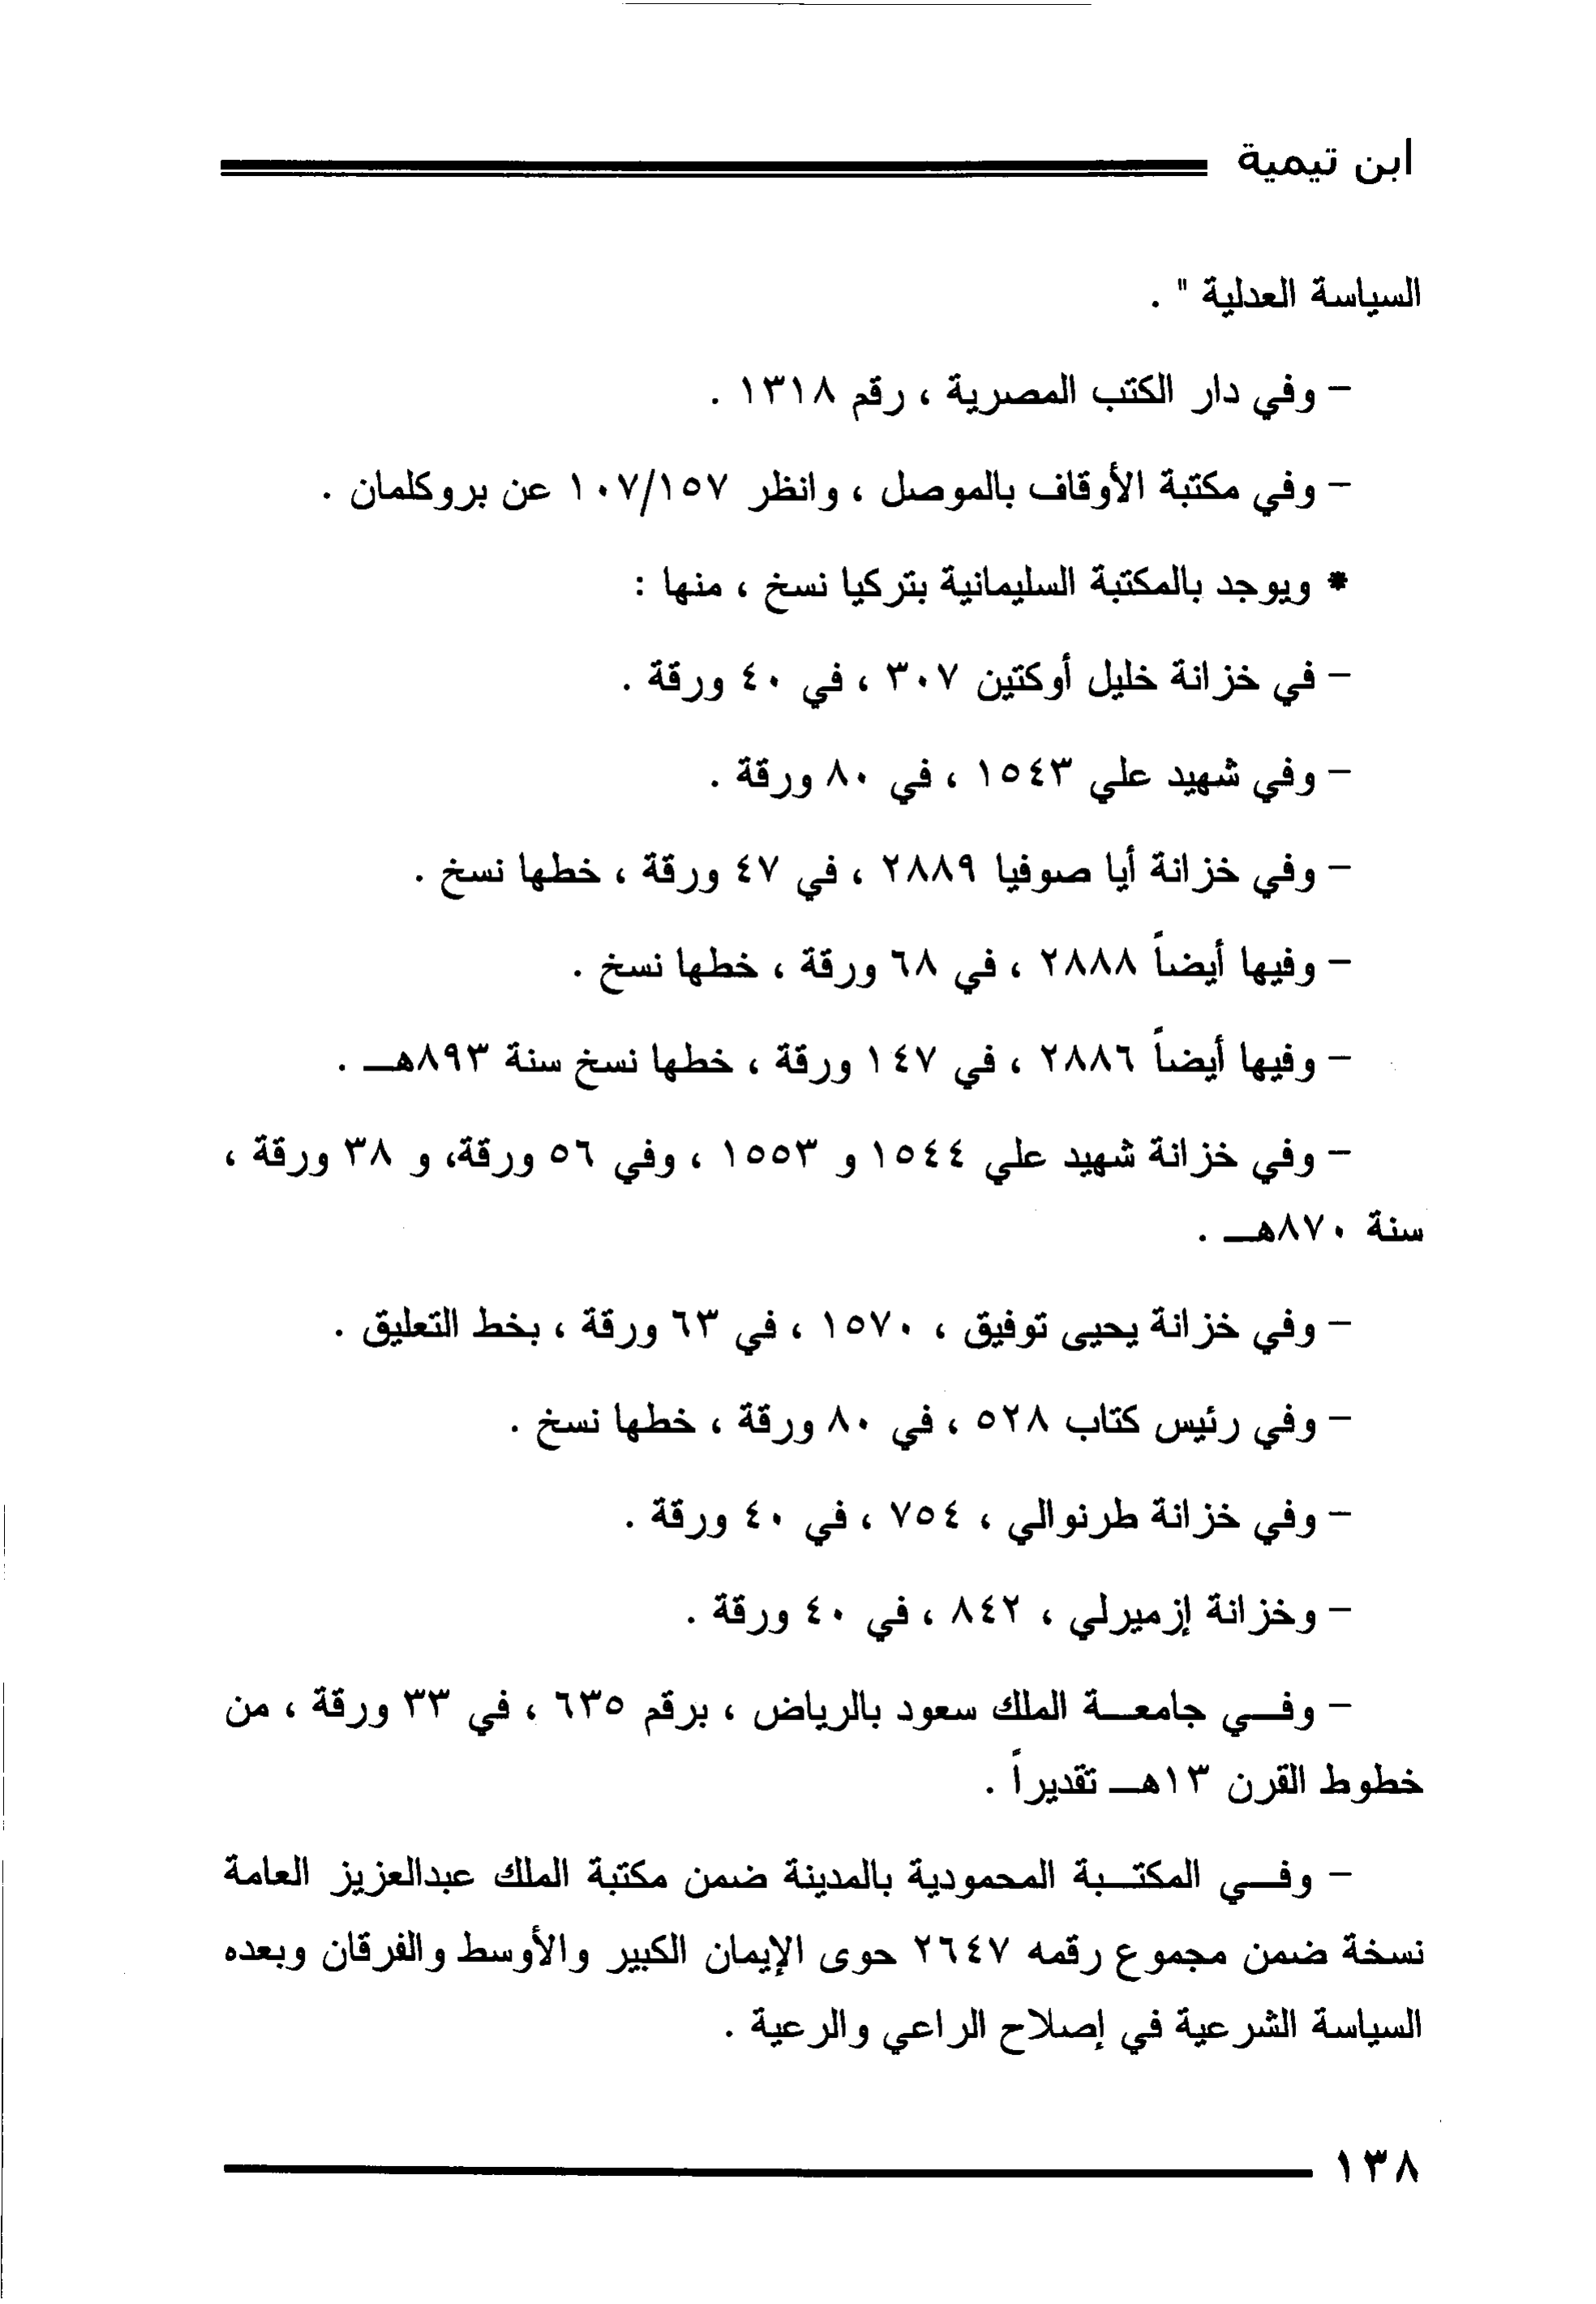 ابن تيمية
السياسة العدلية " .
- وفي دار الكتب المصرية ، رقم ١٣١٨ .
- وفي مكتبة الأوقاف بالموصل ، وانظر ١٠٧/١٥٧ عن بروكلمان .
* ويوجد بالمكتبة السليمانية بتركيا نسخ ، منها :
- في خزانة خليل أوكتين ٣٠٧ ، في ٤٠ ورقة .
- وفي شهيد علي ١٥٤٣ ، في ٨٠ ورقة .
- وفي خزانة أيا صوفيا ٢٨٨٩ ، في ٤٧ ورقة ، خطها نسخ .
- وفيها أيضاً ٢٨٨٨ ، في ٦٨ ورقة ، خطها نسخ .
- وفيها أيضاً ٢٨٨٦ ، في ١٤٧ ورقة ، خطها نسخ سنة ٨٩٣هـ .
- وفي خزانة شهيد علي ١٥٤٤ و ١٥٥٣ ، وفي ٥٦ ورقة، و ٣٨ ورقة ،
سنة ٨٧٠هـ .
- وفي خزانة يحيى توفيق ، ١٥٧٠ ، في ٦٣ ورقة ، بخط التعليق .
- وفي رئيس كتاب ٥٢٨ ، في ٨٠ ورقة ، خطها نسخ .
- وفي خزانة طرنوالي ، ٧٥٤ ، في ٤٠ ورقة .
- وخزانة إزميرلي ، ٨٤٢ ، في ٤٠ ورقة .
- وفي جامعة الملك سعود بالرياض ، برقم ٦٣٥ ، في ٣٣ ورقة ، من
خطوط القرن ١٣هـ تقديراً .
- وفي المكتبة المحمودية بالمدينة ضمن مكتبة الملك عبدالعزيز العامة
نسخة ضمن مجموع رقمه ٢٦٤٧ حوى الإيمان الكبير والأوسط والفرقان وبعده
السياسة الشرعية في إصلاح الراعي والرعية .
١٣٨